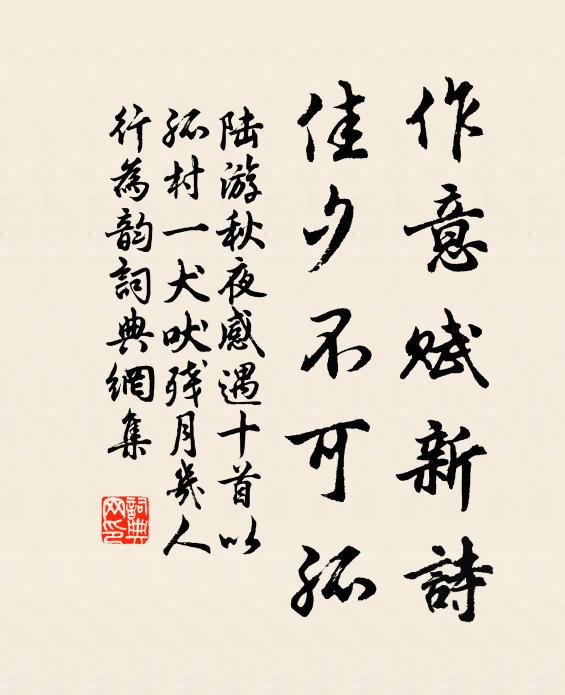 作意赋新詩
佳夕不可孤
陆游秋夜感遇十首以
孤村一犬吠残月幾人
行為韵詞典網集
詞典
网印